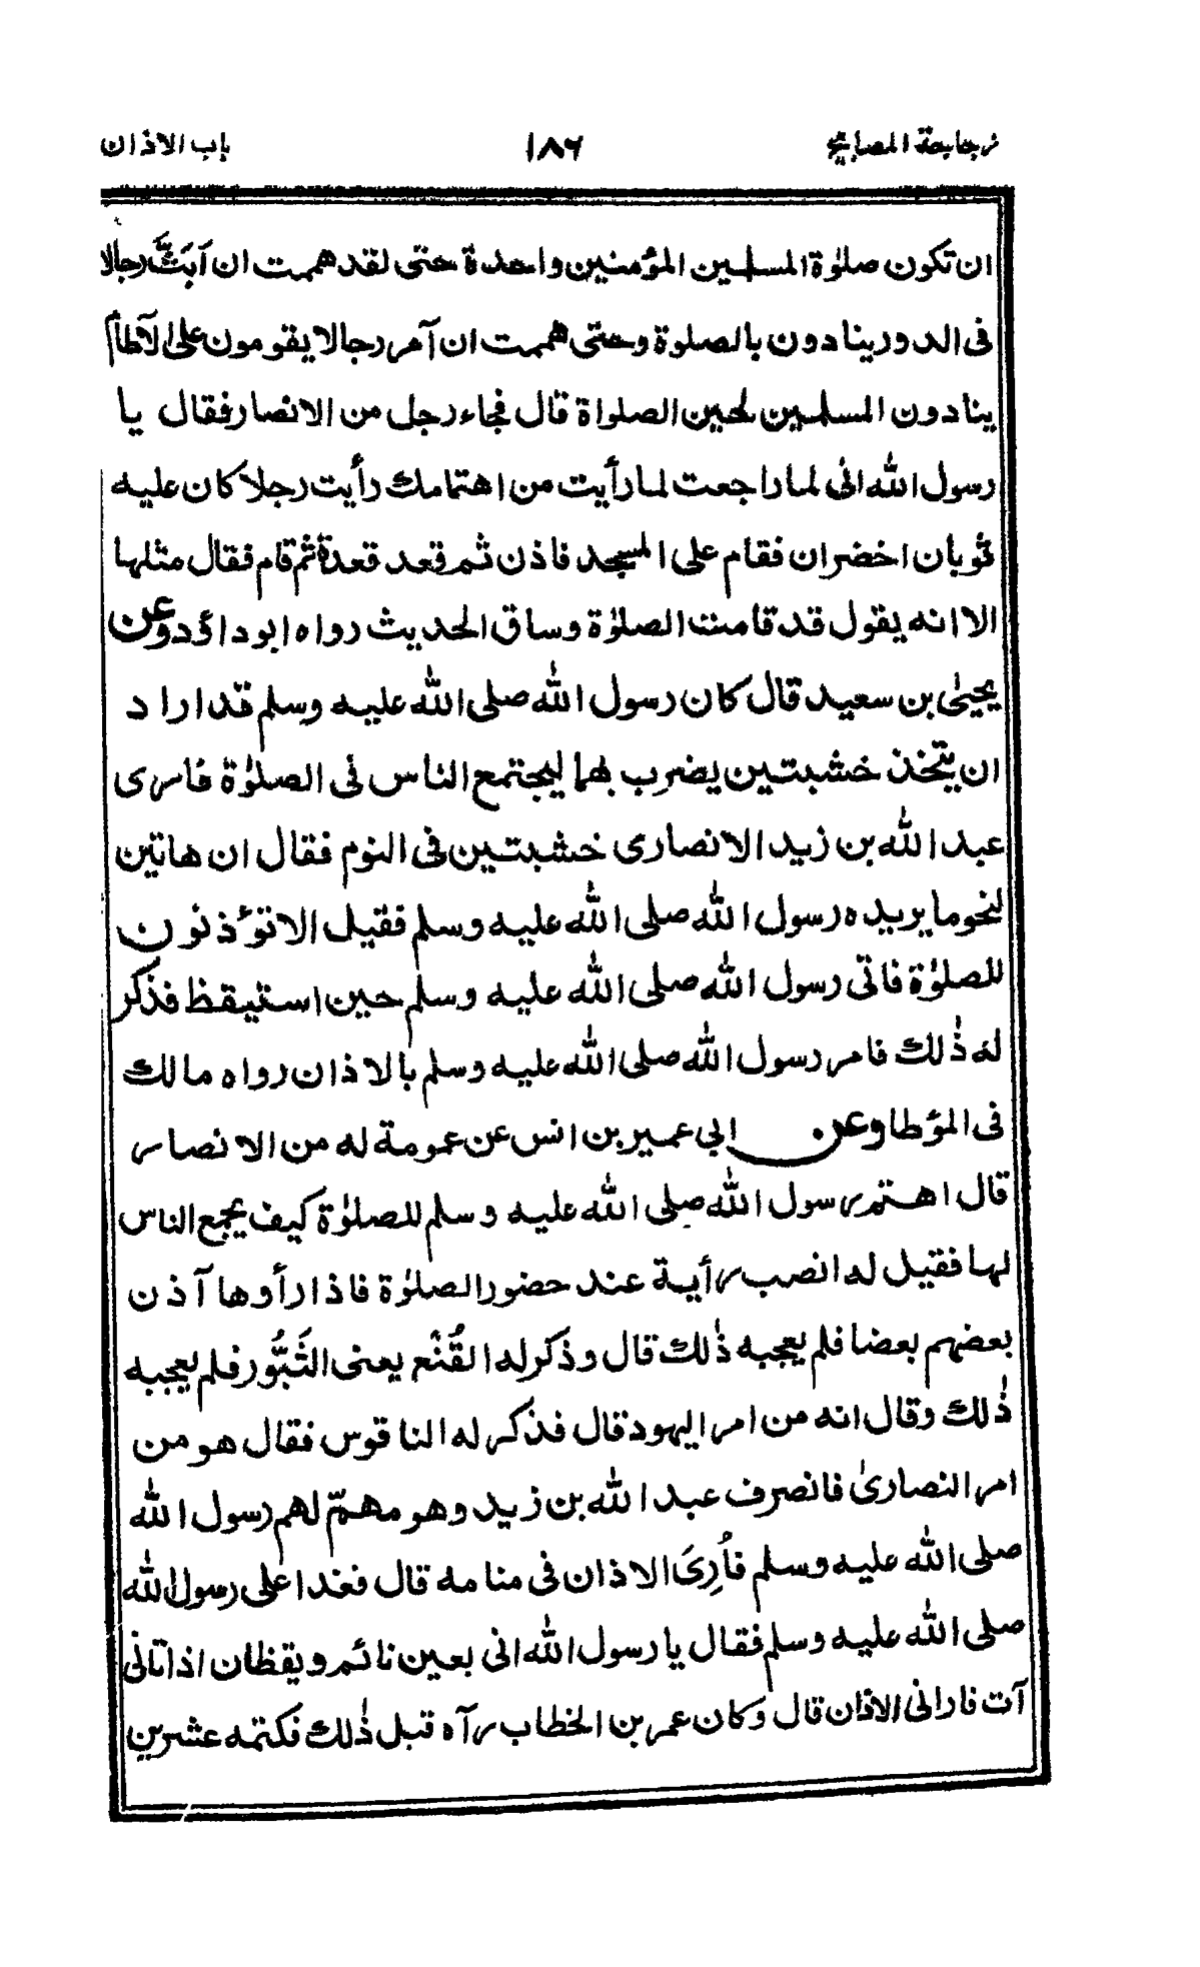 زجاجة المصابيح ١٨٦ باب الاذان
ان تكون صلوٰة المسلمين المؤمنين واحدة حتى لقد هممت ان آبُثّ رجالا
فى الدور ينادون بالصلوة وحتى هممت ان آمر رجالا يقومون على الآطام
ينادون المسلمين لحين الصلواة قال فجاء رجل من الانصار فقال يا
رسول الله انى لما راجعت لما رأيت من اهتمامك رأيت رجلا كان عليه
ثوبان اخضران فقام على المسجد فاذن ثم قعد قعدة ثم قام فقال مثلها
الا انه يقول قد قامت الصلوٰة وساق الحديث رواه ابو داؤد وعن
يحيىٰ بن سعيد قال كان رسول الله صلى الله عليه وسلم قد اراد
ان يتّخذ خشبتين يضرب بهما ليجتمع الناس فى الصلوٰة فارى
عبد الله بن زيد الانصارى خشبتين فى النوم فقال ان هاتين
لنحو ما يريده رسول الله صلى الله عليه وسلم فقيل الا تؤذنون
للصلوٰة فاتى رسول الله صلى الله عليه وسلم حين استيقظ فذكر
له ذٰلك فامر رسول الله صلى الله عليه وسلم بالاذان رواه مالك
فى المؤطا وعن ابي عمير بن انس عن عمومة له من الانصار
قال اهتم رسول الله صلى الله عليه وسلم للصلوٰة كيف يجمع الناس
لها فقيل له انصب رأية عند حضور الصلوٰة فاذا رأوها آذن
بعضهم بعضا فلم يعجبه ذٰلك قال وذكر له القُنْع يعنى الشَّبُّور فلم يعجبه
ذٰلك وقال انه من امر اليهود قال فذكر له الناقوس فقال هو من
امر النصارىٰ فانصرف عبد الله بن زيد وهو مهمّ لهم رسول الله
صلى الله عليه وسلم فأُرِىَ الاذان فى منامه قال فغدا على رسول الله
صلى الله عليه وسلم فقال يا رسول الله انى بعين نائم ويقظان اذ اتانى
آت فارانى الاذان قال وكان عمر بن الخطاب رآه قبل ذٰلك فكتمه عشرين